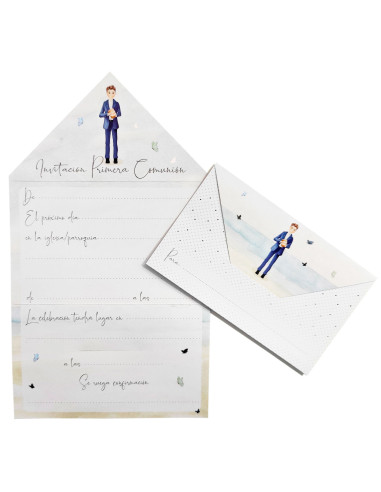 Invitación Primera Comunión
De
El próximo día
en la iglesia/parroquia
de a las
La celebración tendrá lugar en
a las
Se ruega confirmación
Para